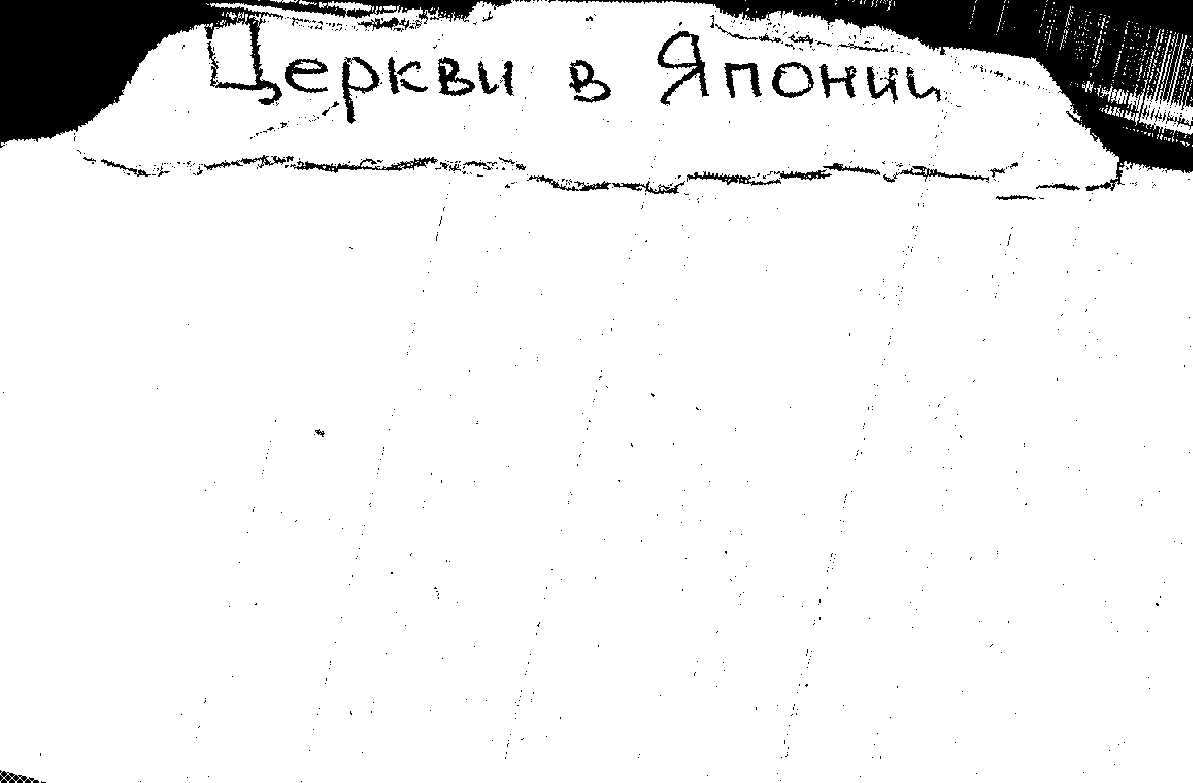 Церкви в Японии